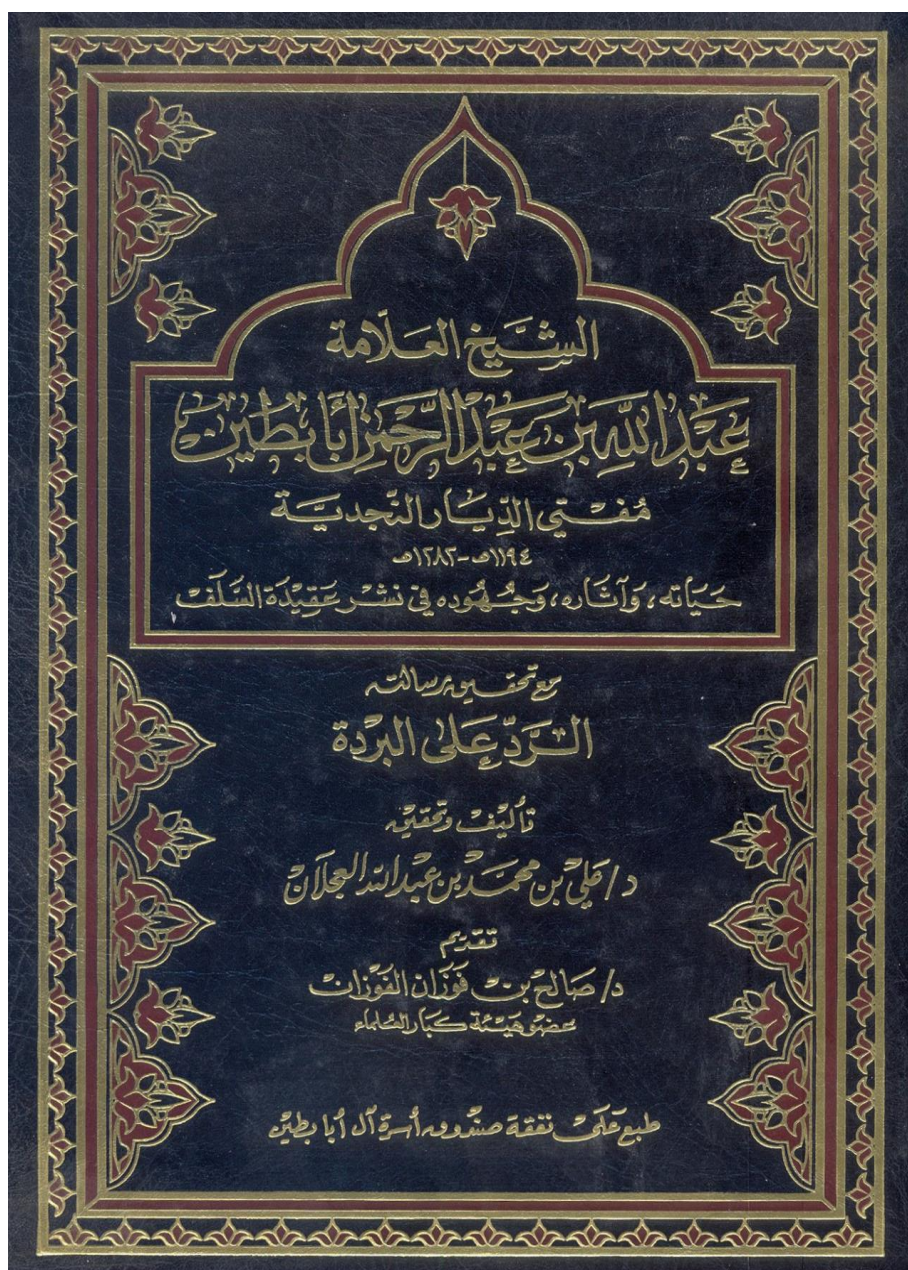 الشَّيخ العَلّامة
عَبْدُ اللهِ بن عَبْد الرَّحمٰن أَبَا بطين
مُفتي الدِّيَار النّجديَّة
١١٩٤هـ - ١٢٨٢هـ
حَيَاته، وَآثَاره، وَجُهُوده في نشر عَقِيدَة السَّلَف
مع تحقيق رسالته
الرَّدّ عَلى البردة
تأليف وتحقيق
د/ علي بن محمد بن عبد الله العجلان
تقديم
د/ صَالح بن فَوزَان الفَوزَان
عضو هيئة كبار العلماء
طبع عَلى نفقة صندوق أسرة آل أبا بطين